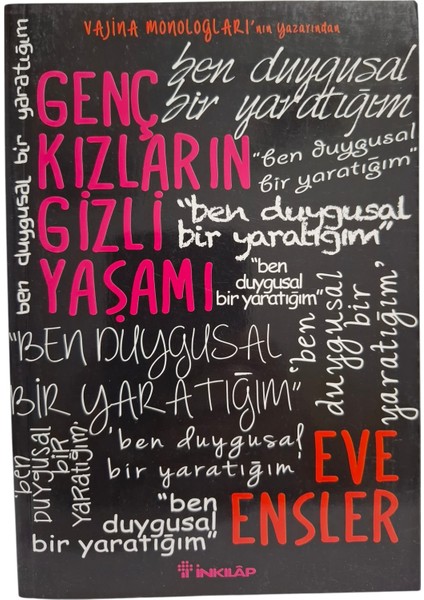 VAJİNA MONOLOGLARI'nın yazarından
GENÇ
KIZLARIN
GİZLİ
YAŞAMI
ben duygusal bir yaratığım
ben duygusal
bir yaratığım
"ben duygusal
bir yaratığım"
"ben duygusal
bir yaratığım"
"ben
duygusal
bir yaratığım"
"BEN DUYGUSAL
BİR YARATIĞIM"
'ben
duygusal
bir
yaratığım'
'ben duygusal
bir yaratığım'
'ben
DUYGUSAL
BİR
YARATIĞIM'
"ben
duygusal
bir yaratığım"
EVE
ENSLER
İNKILÂP